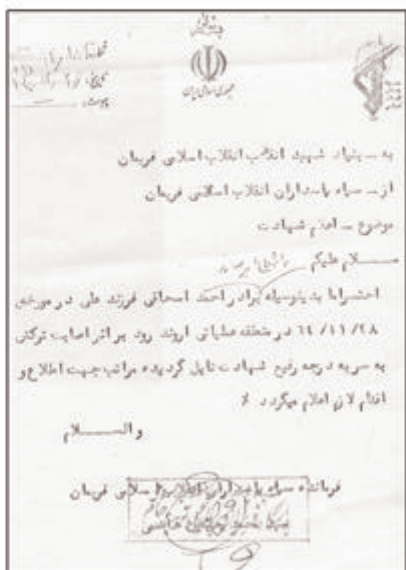 جمهوری اسلامی ایران
به ــ بنیاد شهید انقلاب اسلامی فریمان
از ــ سپاه پاسداران انقلاب اسلامی فریمان
موضوع ــ اعلام شهادت
ســـلام علیکم
احتــراما بدینوسیله برادر احمد اسحاقی فرزند علی در مورخه
۶۴/۱۱/۲۸ در منطقه عملیاتی اروند رود بر اثر اصابت ترکش
به سر به درجه رفیع شهادت نایل گردیده مراتب جهت اطلاع و
اقدام لازم اعلام میگردد
والســـلام
فرمانده سپاه پاسداران انقلاب اسلامی فریمان